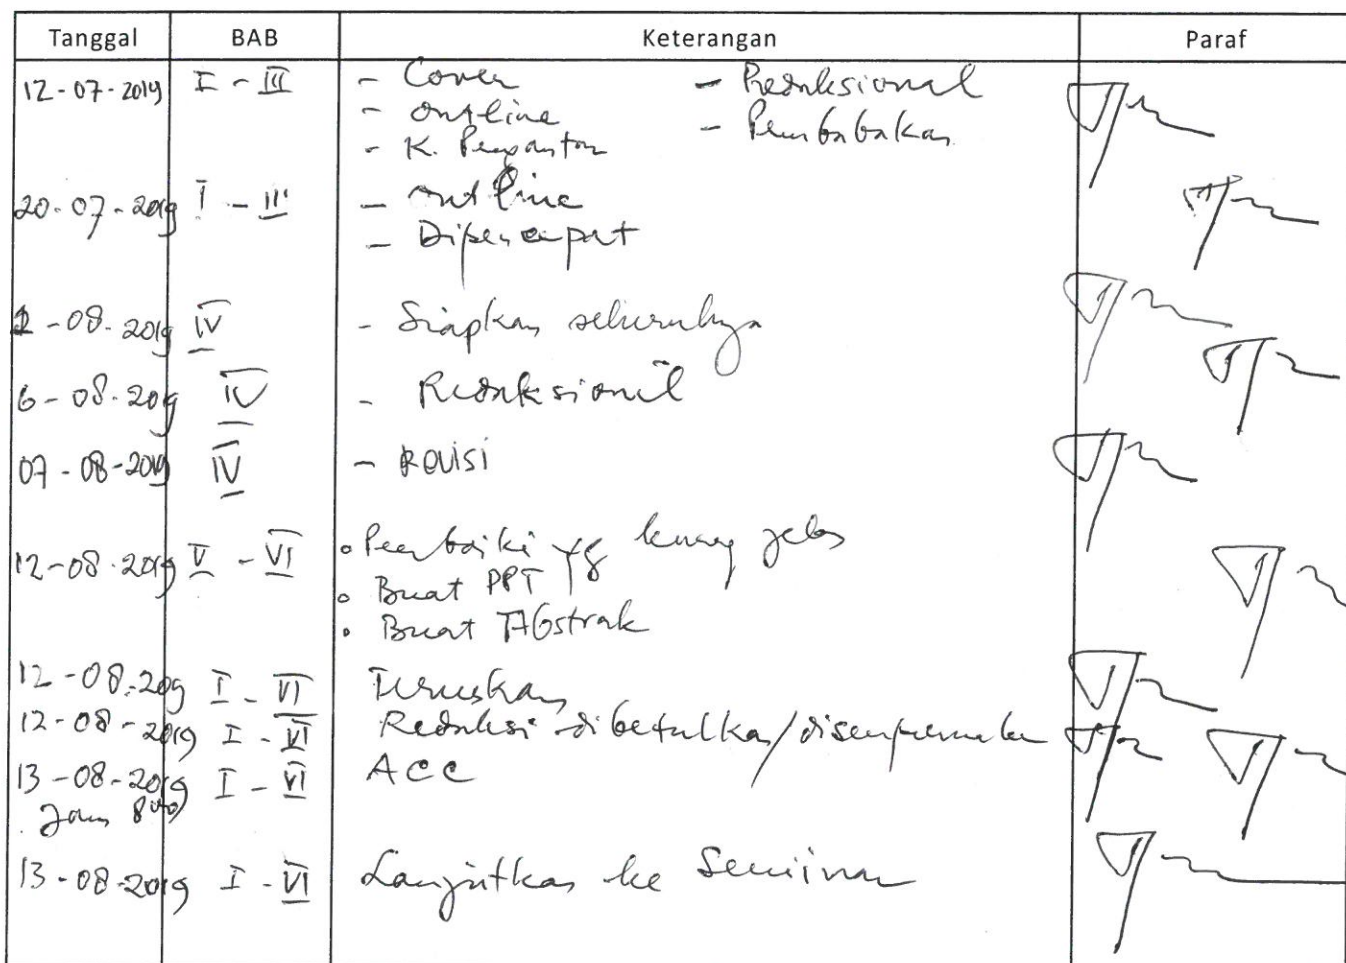 Tanggal BAB Keterangan Paraf
12-07-2019 I - III - Cover - Redaksional
- Outline - Pembabakan
- K. Pengantar
20-07-2019 I - III - Outline
- Dipercepat
-08-2019 IV - Siapkan seluruhnya
6-08-2019 IV - Redaksionil
07-08-2019 IV - Revisi
12-08-2019 V - VI • Perbaiki yg kurang jelas
• Buat PPT
• Buat Abstrak
12-08-2019 I - VI Teruskan
12-08-2019 I - VI Redaksi dibetulkan/disempurnakan
13-08-2019 I - VI ACC
Jam 8
13-08-2019 I - VI Lanjutkan ke Seminar